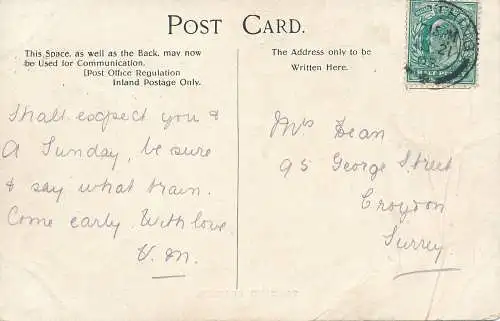 POST CARD.
This Space, as well as the Back, may now
be Used for Communication.
(Post Office Regulation
Inland Postage Only.
The Address only to be
Written Here.
Shall expect you &
A Sunday, be sure
& say what train.
Come early. With love
V.M.
Mrs
95 George Street
Croydon
Surrey.